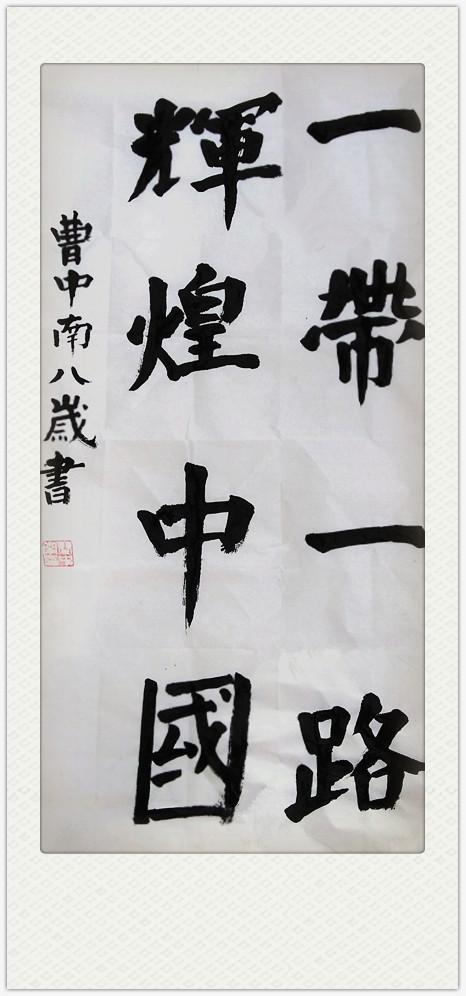 一帶一路
輝煌中國
曹中南八歲書